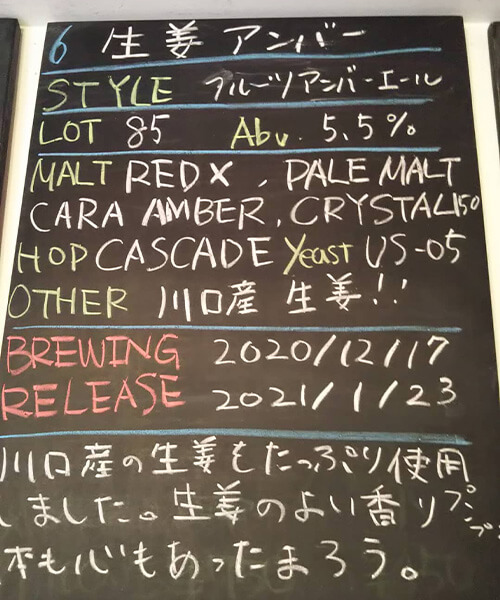 6 生姜アンバー
STYLE フルーツアンバーエール
LOT 85 Abv. 5.5%
MALT RED X, PALE MALT
CARA AMBER, CRYSTAL150
HOP CASCADE Yeast US-05
OTHER 川口産 生姜!!
BREWING 2020/12/17
RELEASE 2021/1/23
川口産の生姜もたっぷり使用
しました。生姜のよい香りプンプン
体も心もあったまろう。